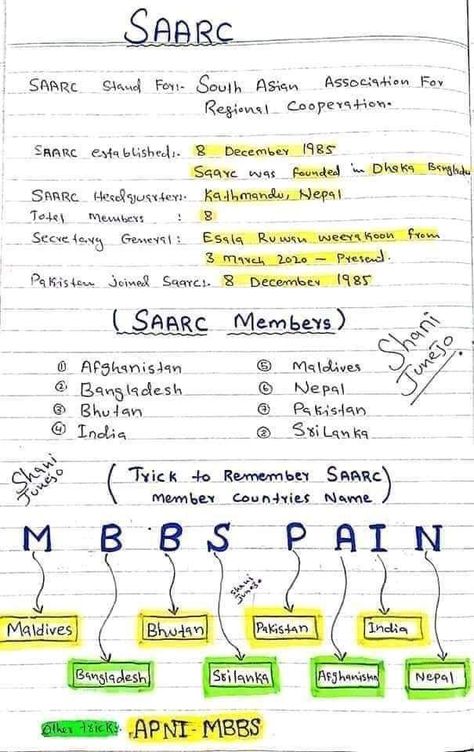 SAARC
SAARC Stand For:- South Asian Association For
Regional Cooperation.
SAARC established:. 8 December 1985
Saarc was founded in Dhaka Bangladu
SAARC Headquarter:. Kathmandu, Nepal
Total Members : 8
Secretary General : Esala Ruwan weerakoon from
3 march 2020 – Present.
Pakistan joined Saarc:. 8 December 1985
(SAARC Members)
① Afghanistan ⑤ Maldives
② Bangladesh ⑥ Nepal
③ Bhutan ⑦ Pakistan
④ India ⑧ SriLanka
Shani
Junejo
Shani
Junejo
(Trick to Remember SAARC)
member countries Name
M B B S P A I N
Shani
Junejo
Maldives Bhutan Pakistan India
Bangladesh Srilanka Afghanistan Nepal
Other Trick:. APNI-MBBS